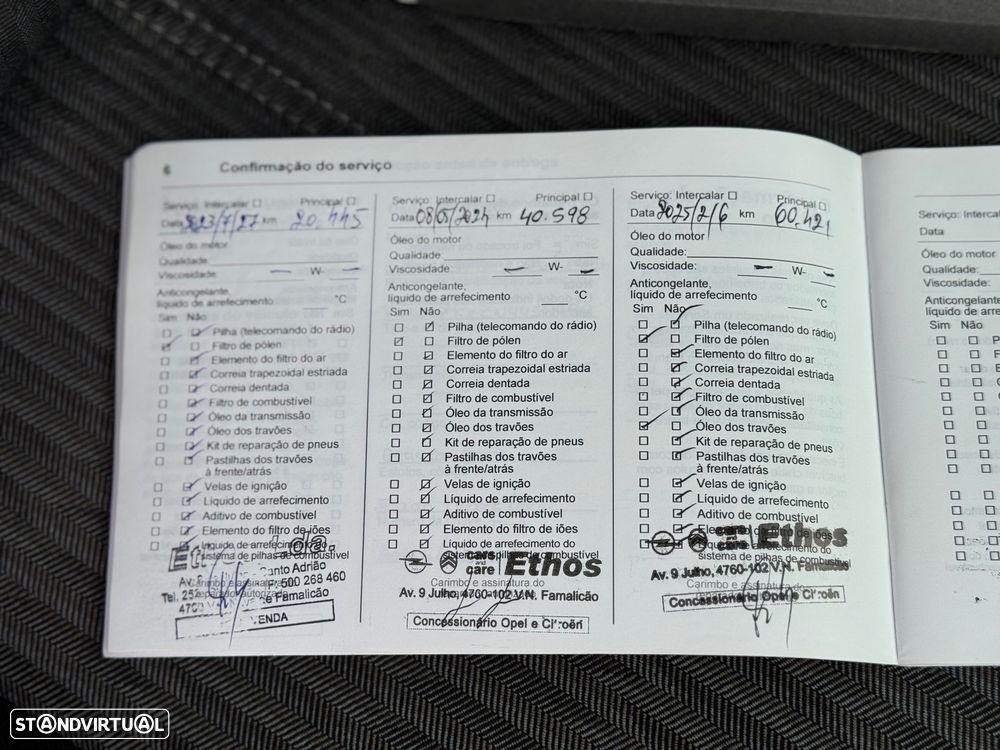 6 Confirmação do serviço
Serviço: Intercalar ☐ Principal ☐
Data 2023/7/27 km 20.445
Óleo do motor
Qualidade:
Viscosidade: — W- —
Anticongelante,
líquido de arrefecimento °C
Sim Não
Pilha (telecomando do rádio)
Filtro de pólen
Elemento do filtro do ar
Correia trapezoidal estriada
Correia dentada
Filtro de combustível
Óleo da transmissão
Óleo dos travões
Kit de reparação de pneus
Pastilhas dos travões
à frente/atrás
Velas de ignição
Líquido de arrefecimento
Aditivo de combustível
Elemento do filtro de iões
Líquido de arrefecimento do
sistema de pilhas de combustível
Lda.
Santo Adrião
Carimbo e assinatura do
500 268 460
Tel. 252
reparador autorizado
Famalicão
VENDA
Serviço: Intercalar ☐ Principal ☐
Data 08/05/2024 km 40.598
Óleo do motor
Qualidade:
Viscosidade: — W- —
Anticongelante,
líquido de arrefecimento °C
Sim Não
Pilha (telecomando do rádio)
Filtro de pólen
Elemento do filtro do ar
Correia trapezoidal estriada
Correia dentada
Filtro de combustível
Óleo da transmissão
Óleo dos travões
Kit de reparação de pneus
Pastilhas dos travões
à frente/atrás
Velas de ignição
Líquido de arrefecimento
Aditivo de combustível
Elemento do filtro de iões
Líquido de arrefecimento do
sistema de pilhas de combustível
cars and care Ethos
Carimbo e assinatura do
Av. 9 Julho, 4760-102 V.N. Famalicão
Concessionário Opel e Citroën
Serviço: Intercalar ☐ Principal ☐
Data 2025/2/6 km 60.421
Óleo do motor
Qualidade:
Viscosidade: — W- —
Anticongelante,
líquido de arrefecimento °C
Sim Não
Pilha (telecomando do rádio)
Filtro de pólen
Elemento do filtro do ar
Correia trapezoidal estriada
Correia dentada
Filtro de combustível
Óleo da transmissão
Óleo dos travões
Kit de reparação de pneus
Pastilhas dos travões
à frente/atrás
Velas de ignição
Líquido de arrefecimento
Aditivo de combustível
Elemento do filtro de iões
Líquido de arrefecimento do
sistema de pilhas de combustível
cars and care Ethos
Av. 9 Julho, 4760-102 V.N. Famalicão
Carimbo e assinatura do
Concessionário Opel e Citroën
Serviço: Interca
Data
Óleo do motor
Qualidade:
Viscosidade:
Anticongelante
líquido de arref
Sim Não
STANDVIRTUAL